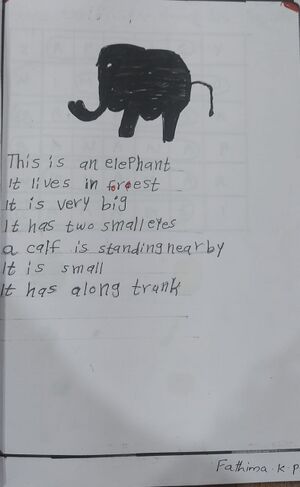 This is an elephant
It lives in froest
It is very big
It has two small eyes
a calf is standing nearby
It is small
It has along trunk
Fathima. K. P